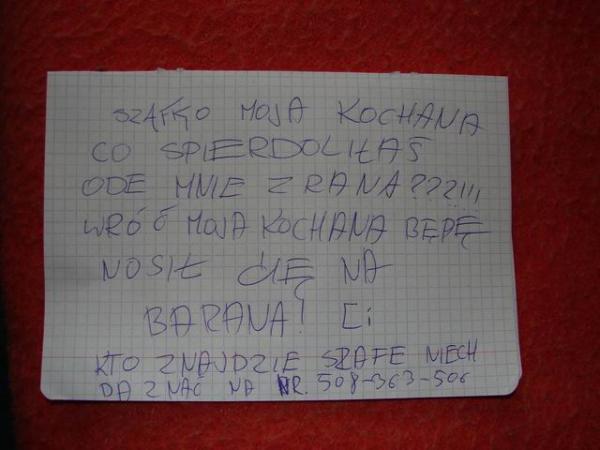 SZAFKO MOJA KOCHANA
CO SPIERDOLIŁAŚ
ODE MNIE Z RANA???!!!
WRÓĆ MOJA KOCHANA BĘDĘ
NOSIŁ CIĘ NA
BARANA! C;
KTO ZNAJDZIE SZAFE NIECH
DA ZNAĆ NA NR. 508-363-506